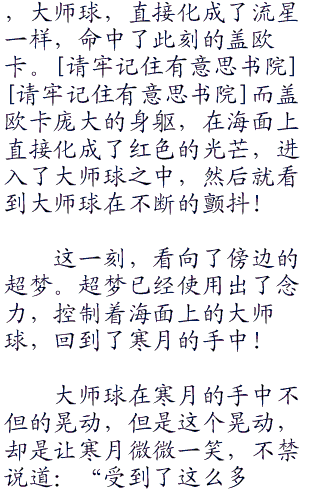 ，大师球，直接化成了流星
一样，命中了此刻的盖欧
卡。[请牢记住有意思书院]
[请牢记住有意思书院]而盖
欧卡庞大的身躯，在海面上
直接化成了红色的光芒，进
入了大师球之中，然后就看
到大师球在不断的颤抖！
这一刻，看向了傍边的
超梦。超梦已经使用出了念
力，控制着海面上的大师
球，回到了寒月的手中！
大师球在寒月的手中不
但的晃动，但是这个晃动，
却是让寒月微微一笑，不禁
说道：“受到了这么多